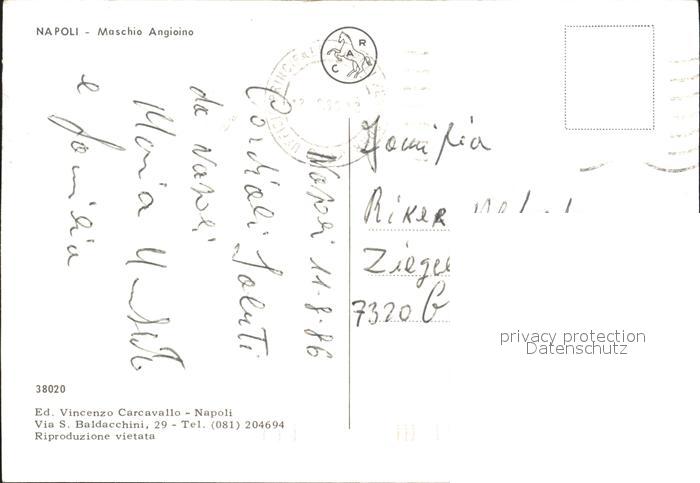 NAPOLI - Maschio Angioino
C A R
Napoli 11-8-86
Cordiali Saluti
da Napoli
Maria
e familia
Familia
Riker
7320 G
privacy protection
Datenschutz
38020
Ed. Vincenzo Carcavallo - Napoli
Via S. Baldacchini, 29 - Tel. (081) 204694
Riproduzione vietata